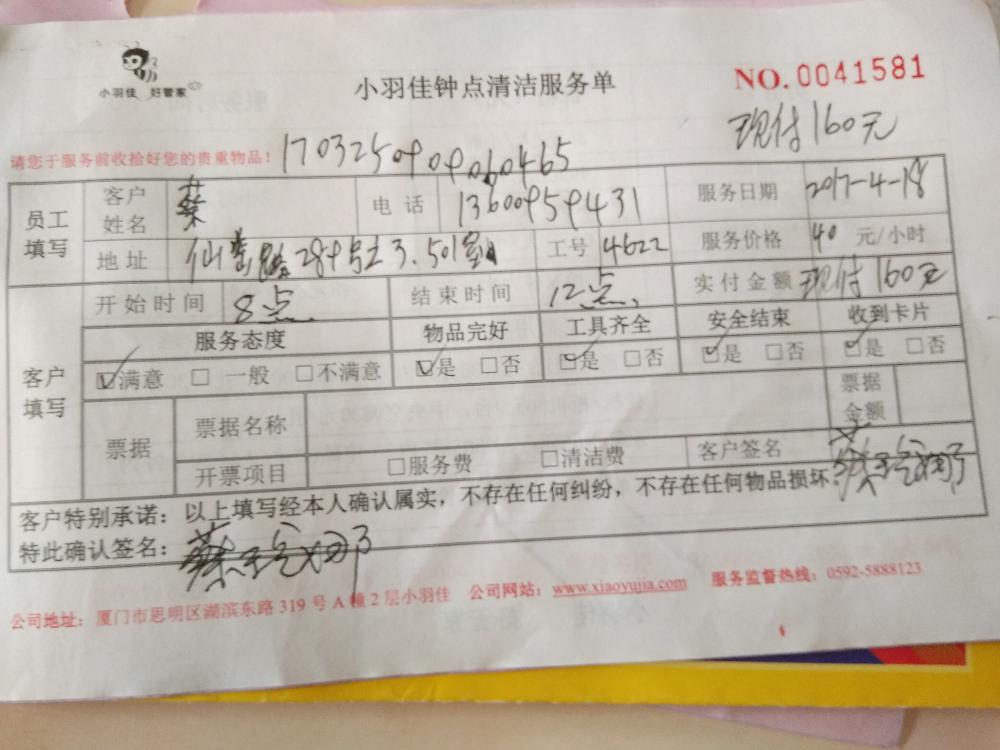 小羽佳 好管家
小羽佳钟点清洁服务单
NO.0041581
现付160元
请您于服务前收拾好您的贵重物品!
1703250909060465
员工填写 客户姓名 蔡 电话 13600959431 服务日期 2017-4-18
地址 284号之3.501室 工号 4622 服务价格 40 元/小时
客户填写 开始时间 8点 结束时间 12点 实付金额 现付160元
服务态度 物品完好 工具齐全 安全结束 收到卡片
☑满意 □ 一般 □不满意 ☑是 □否 ☑是 □否 ☑是 □否 ☑是 □否
票据 票据名称 票据金额
开票项目 □服务费 □清洁费 客户签名
客户特别承诺:以上填写经本人确认属实,不存在任何纠纷,不存在任何物品损坏.
特此确认签名:蔡
公司地址:厦门市思明区湖滨东路 319 号 A 幢 2 层小羽佳 公司网站:www.xiaoyujia.com 服务监督热线:0592-5888123